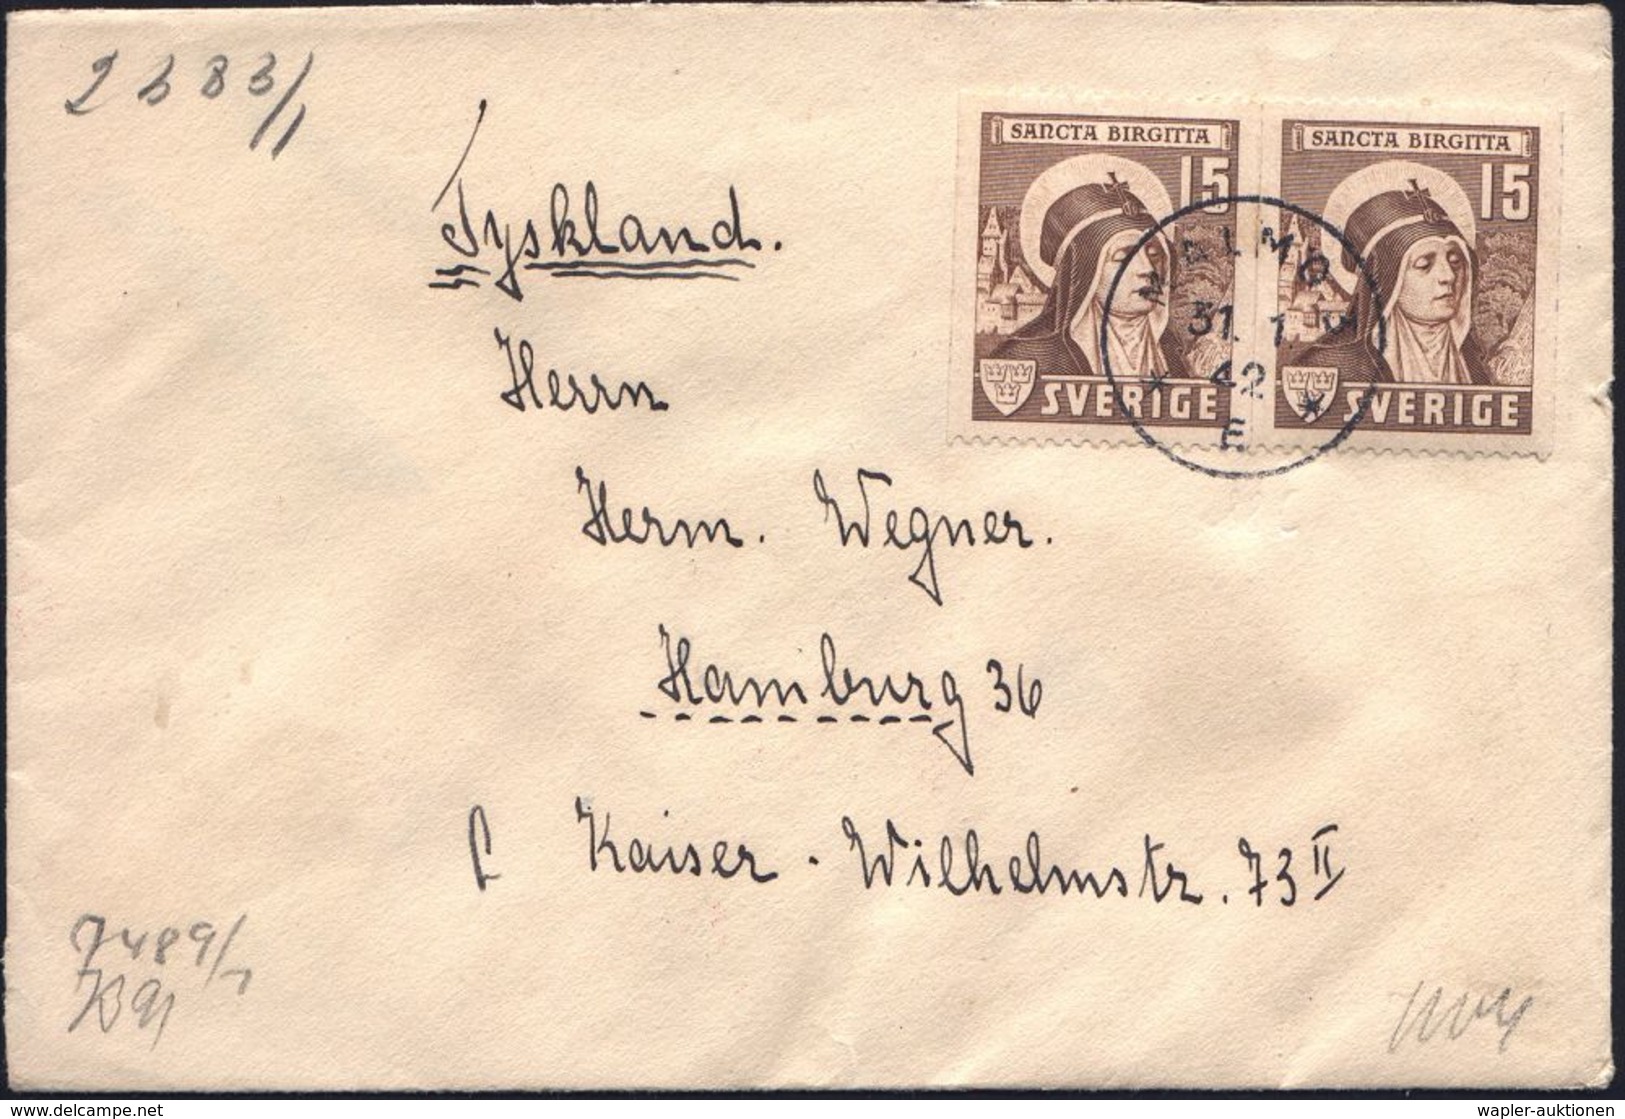 2 3 8 3/1
Tyskland.
SANCTA BIRGITTA
15
SVERIGE
SANCTA BIRGITTA
15
SVERIGE
MALMÖ
31. 1.
42
* E *
Herrn
Herm. Wegner.
Hamburg 36
Kaiser - Wilhelmstr. 73 II
7489/1
www.delcampe.net
wapler-auktionen